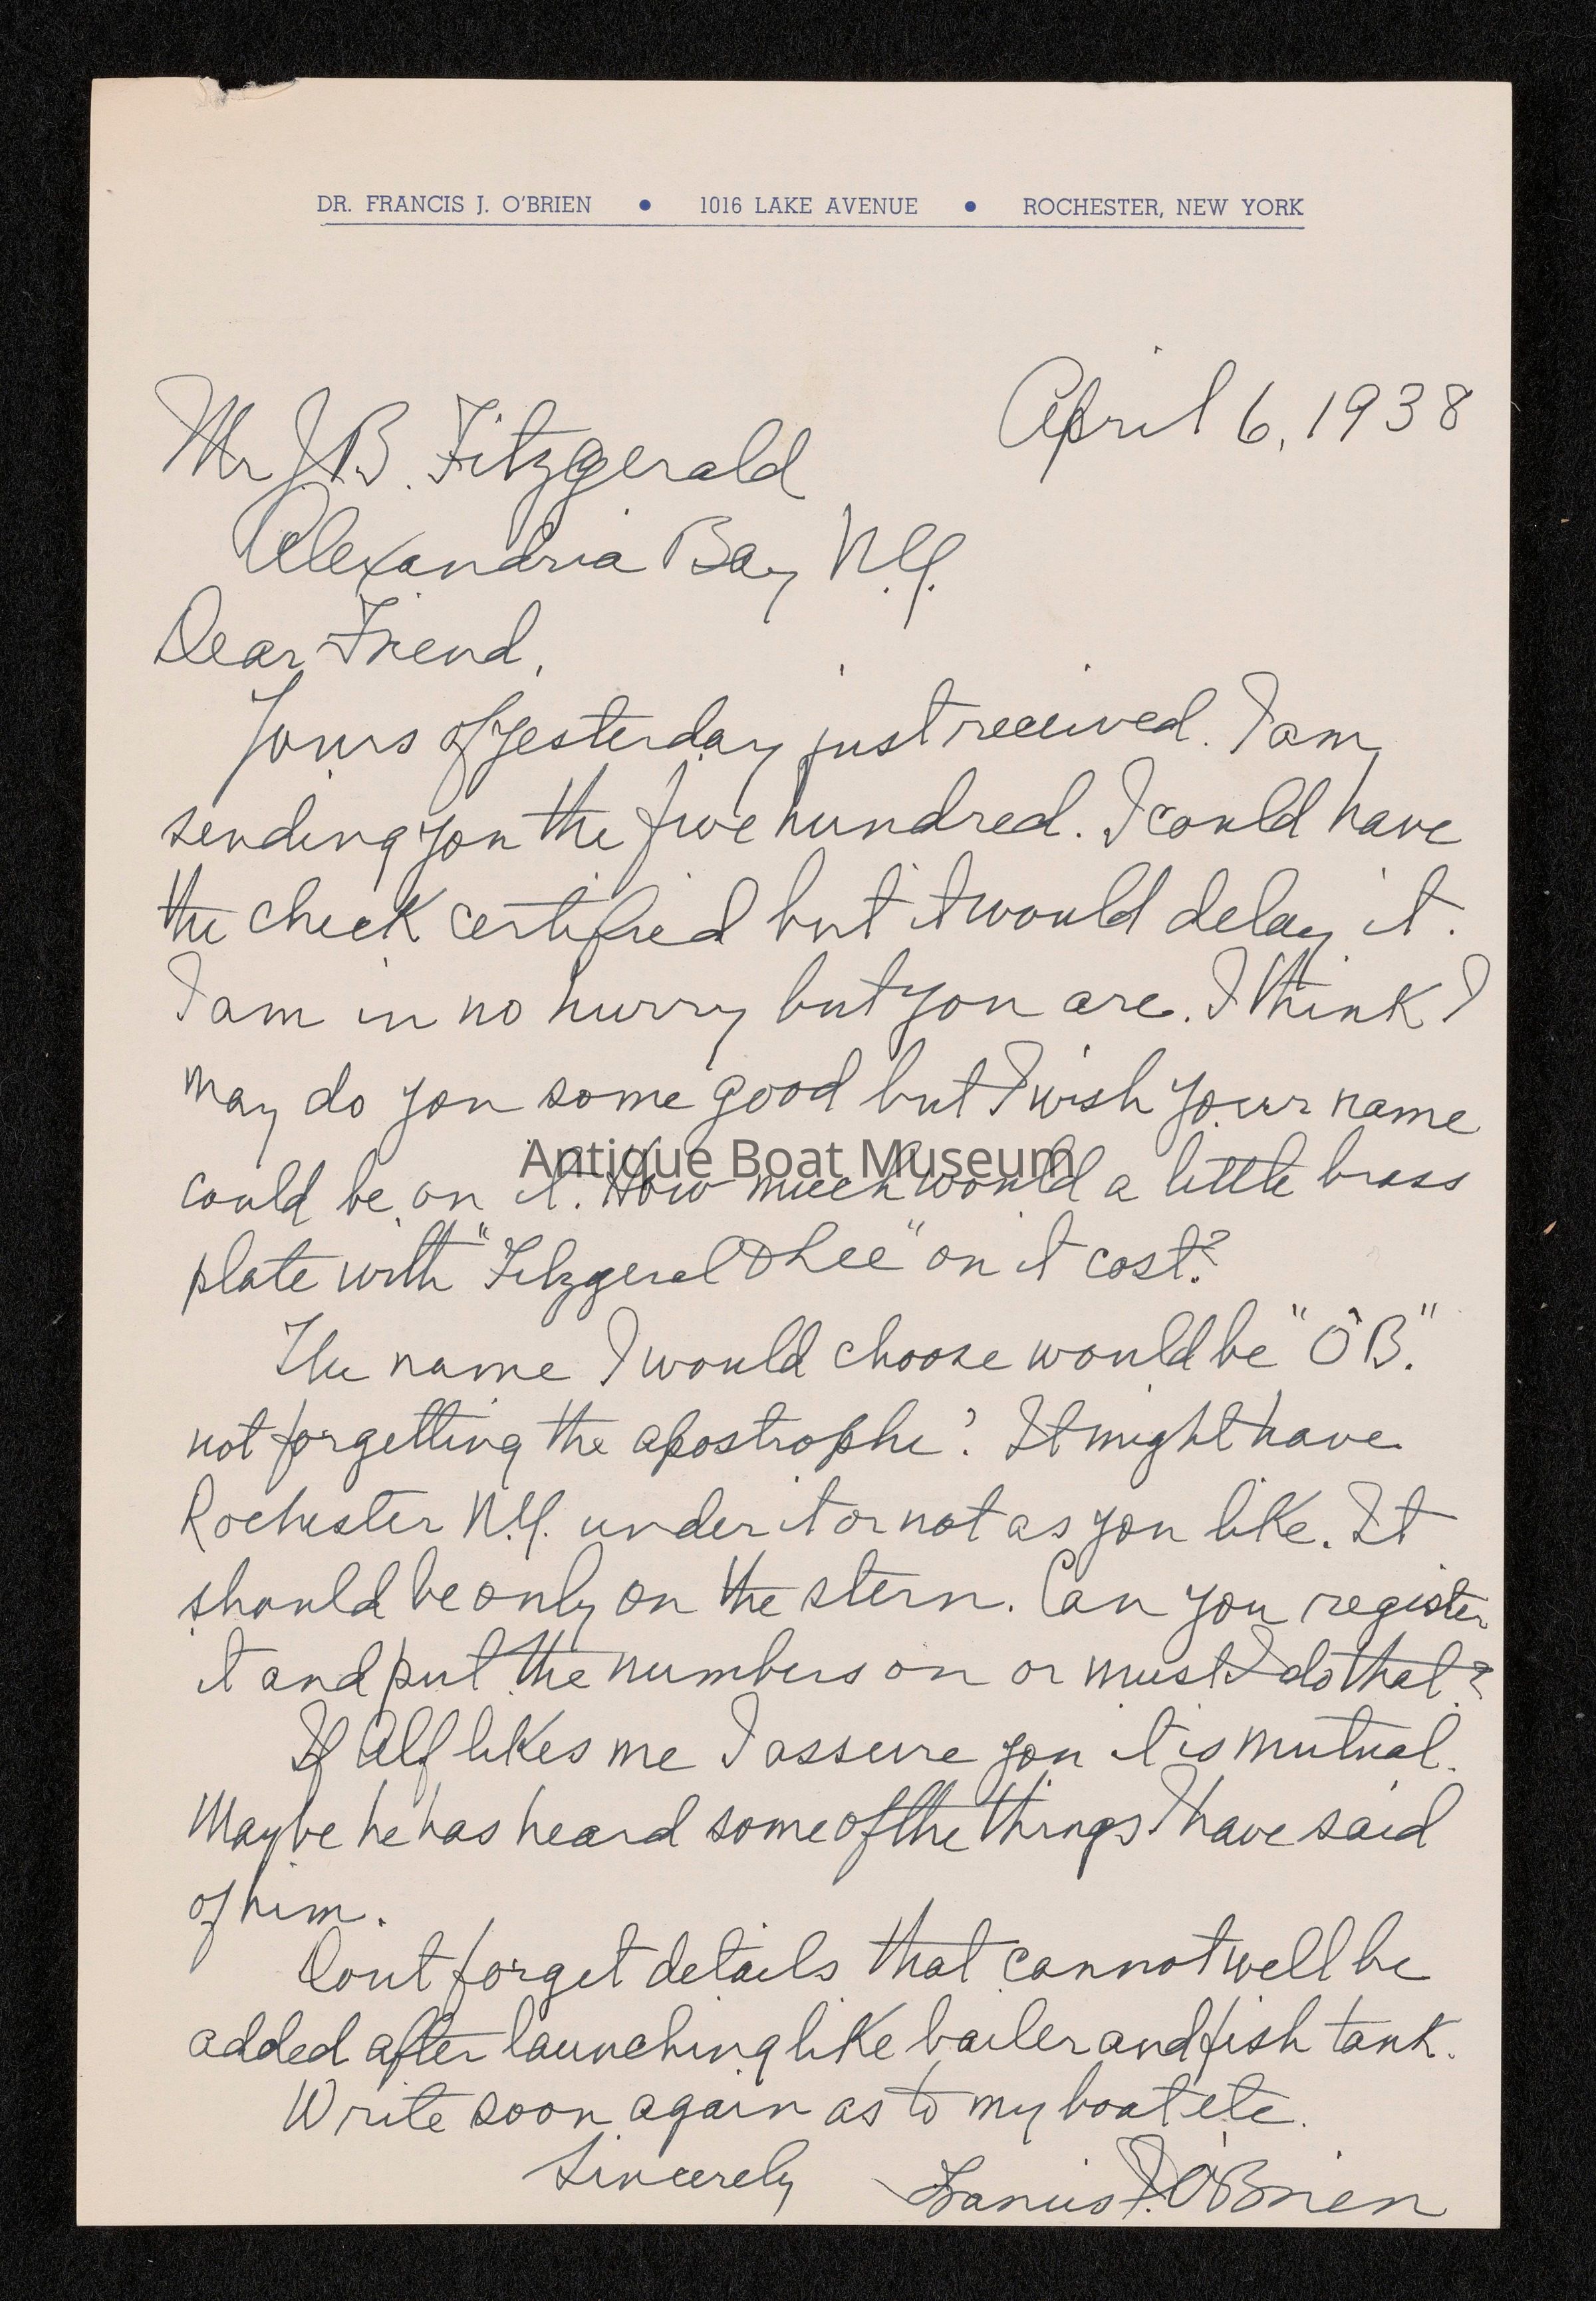 DR. FRANCIS J. O'BRIEN • 1016 LAKE AVENUE • ROCHESTER, NEW YORK
April 6, 1938
Mr J.B. Fitzgerald
Alexandria Bay N.Y.
Dear Friend,
Yours of yesterday just received. I am
sending you the five hundred. I could have
the check certified but it would delay it.
I am in no hurry but you are. I think I
may do you some good but I wish your name
could be on it. How much would a little brass
Antique Boat Museum
plate with "Fitzgerald & Lee" on it cost?
The name I would choose would be "O'B."
not forgetting the apostrophe '. It might have
Rochester N.Y. under it or not as you like. It
should be only on the stern. Can you register
it and put the numbers on or must I do that?
If Alf likes me I assure you it is mutual.
Maybe he has heard some of the things I have said
of him.
Dont forget details that cannot well be
added after launching like bailer and fish tank.
Write soon again as to my boat etc.
Sincerely Francis J. O'Brien